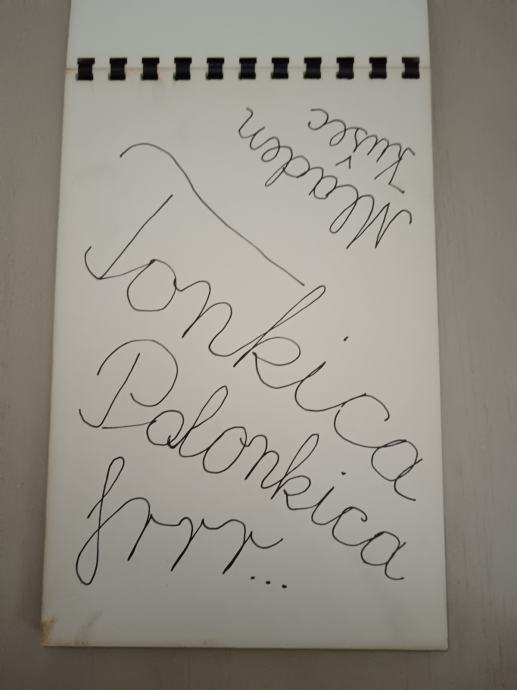 Mladen
Kušec
Tonkica
Palonkica
frrr...